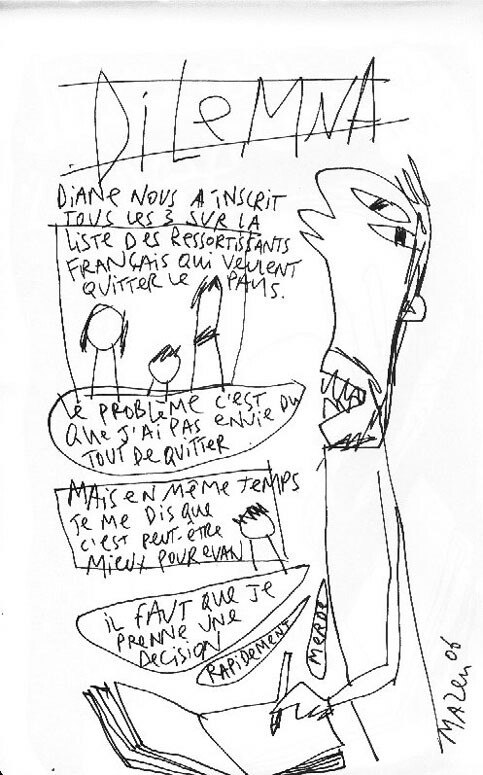 DILEMNA
DIANE NOUS A INSCRIT
TOUS LES 3 SUR LA
LISTE DES RESSORTISSANTS
FRANÇAIS QUI VEULENT
QUITTER LE PAYS.
LE PROBLÈME C'EST
QUE J'AI PAS ENVIE DU
TOUT DE QUITTER
MAIS EN MÊME TEMPS
JE ME DIS QUE
C'EST PEUT-ÊTRE
MIEUX POUR EVAN
IL FAUT QUE JE
PRENNE UNE
DECISION
RAPIDEMENT
MERDE
MAZEN 06